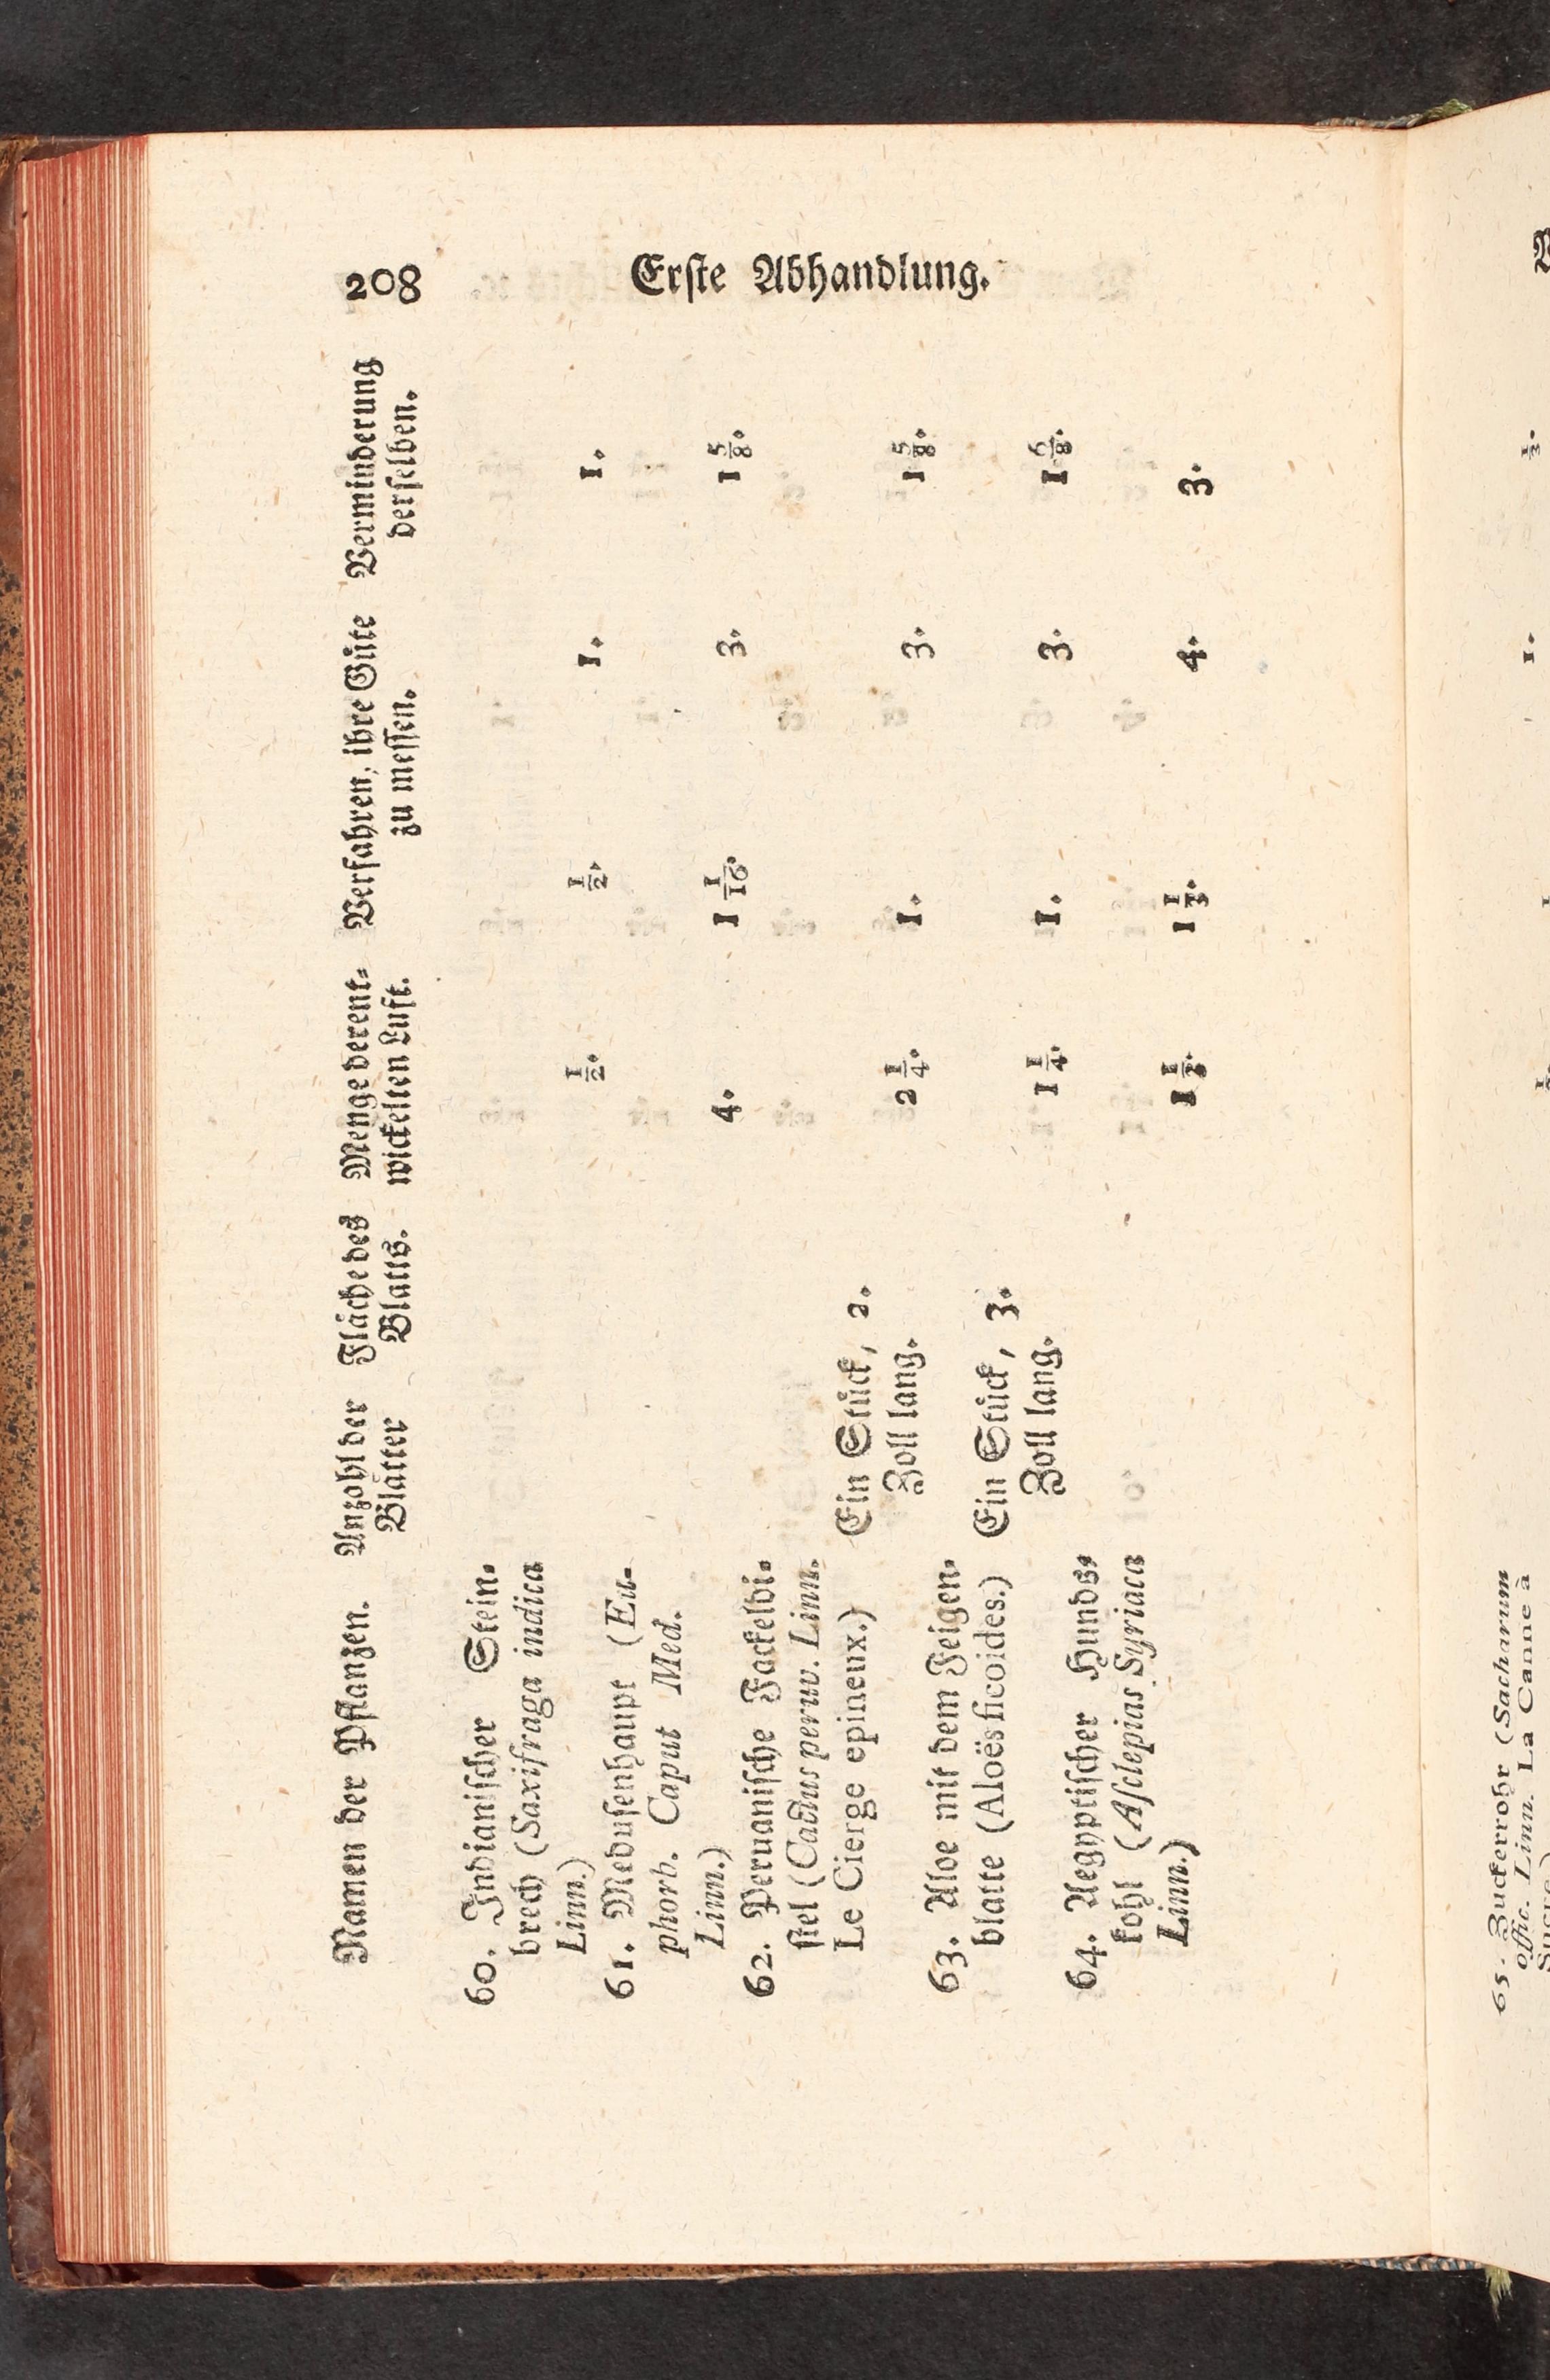 208 Erſte Abhandlung.
Namen der Pflanzen. Anzahl der Fläche des Menge der ent- Verfahren, ihre Güte Verminderung
Blätter Blatts. wickelten Luft. zu meſſen. derſelben.
60. Indianiſcher Stein-
brech (Saxifraga indica
Linn.) 1/2. 1/2. 1. 1.
61. Meduſenhaupt (Eu-
phorb. Caput Med.
Linn.) 4. 1 1/16. 3. 1 5/8.
62. Peruaniſche Fackeldi-
ſtel (Cactus peruv. Linn.
Le Cierge epineux.) Ein Stück, 2.
Zoll lang. 2 1/4. 1. 3. 1 5/8.
63. Aloe mit dem Feigen-
blatte (Aloës ficoides.) Ein Stück, 3.
Zoll lang. 1 1/4. 1. 3. 1 /8.
64. Aegyptiſcher Hunds-
kohl (Aſclepias Syriaca
Linn.) 1 1/2. 1 1/3. 4. 3.
65. Zuckerrohr (Sacharum
offic. Linn. La Canne à
1. 1/3.